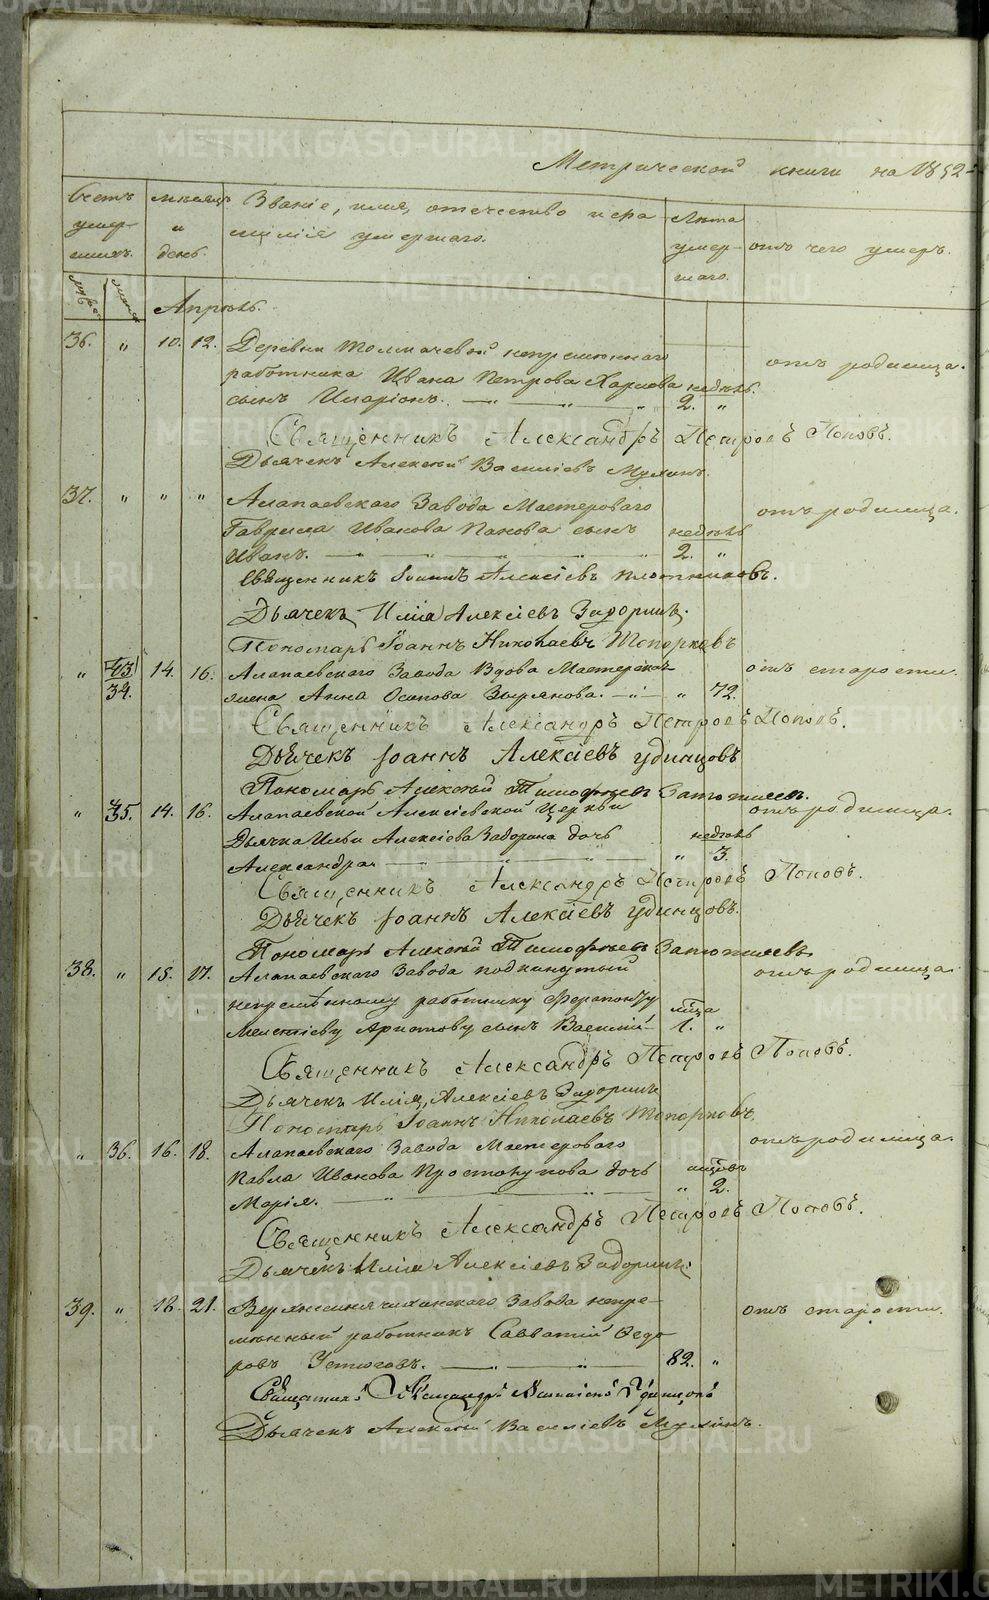 Метрической книги на 1852
Счетъ умершихъ. Мѣсяцъ и день. Званіе, имя, отечество и фамилія умершаго. Лѣта умершаго. отъ чего умеръ.
Муж. женс.
Апрѣль.
36. " 10. 12. Деревни Толмачевой непремѣннаго
работника Ивана Петрова сынъ Иларіонъ. недѣль 2. " отъ родимца.
Священникъ Александръ Петровъ Поповъ.
Дьячекъ Алексѣй Василіевъ Мухинъ.
37. " " " Алапаевскаго Завода Мастероваго
Гаврила Иванова Панова сынъ
Иванъ. недѣль 2. " отъ родимца.
Священникъ Іоаннъ Алексіевъ Плотниковъ.
Дьячекъ Илія Алексіевъ Задоринъ.
Пономарь Іоаннъ Николаевъ Топорковъ
" 34. 14. 16. Алапаевскаго Завода Вдова Мастерская
жена Анна Осипова Зырянова. " 72. отъ старости.
Священникъ Александръ Петровъ Поповъ.
Дьячекъ Іоаннъ Алексіевъ Удинцовъ
Пономарь Алексѣй Тимофѣевъ
" 35. 14. 16. Алапаевской Алексіевской Церкви
Дьячка Ильи Алексіева Задорина дочь
Александра. недѣль " 3. отъ родимца.
Священникъ Александръ Петровъ Поповъ.
Дьячекъ Іоаннъ Алексіевъ Удинцовъ.
Пономарь Алексѣй Тимофѣевъ
38. " 15. 17. Алапаевскаго Завода подкинутый
непремѣнному работнику Ферапонту
Мелентіеву сынъ Василій 1. " отъ родимца.
Священникъ Александръ Петровъ Поповъ.
Дьячекъ Илія Алексіевъ Задоринъ
Пономарь Іоаннъ Николаевъ Топорковъ.
" 36. 16. 18. Алапаевскаго Завода Мастероваго
Павла Иванова Простокупова дочь
Марія. " 2. отъ родимца.
Священникъ Александръ Петровъ Поповъ.
Дьячекъ Илія Алексіевъ Задоринъ
39. " 18. 21. Верхнесинячихинскаго Завода непре-
мѣнный работникъ Савватій Ѳедо-
ровъ Устюговъ. 82. " отъ старости.
Священникъ Александръ Удинцовъ
Дьячекъ Алексѣй Василіевъ Мухинъ.
METRIKI.GASO-URAL.RU